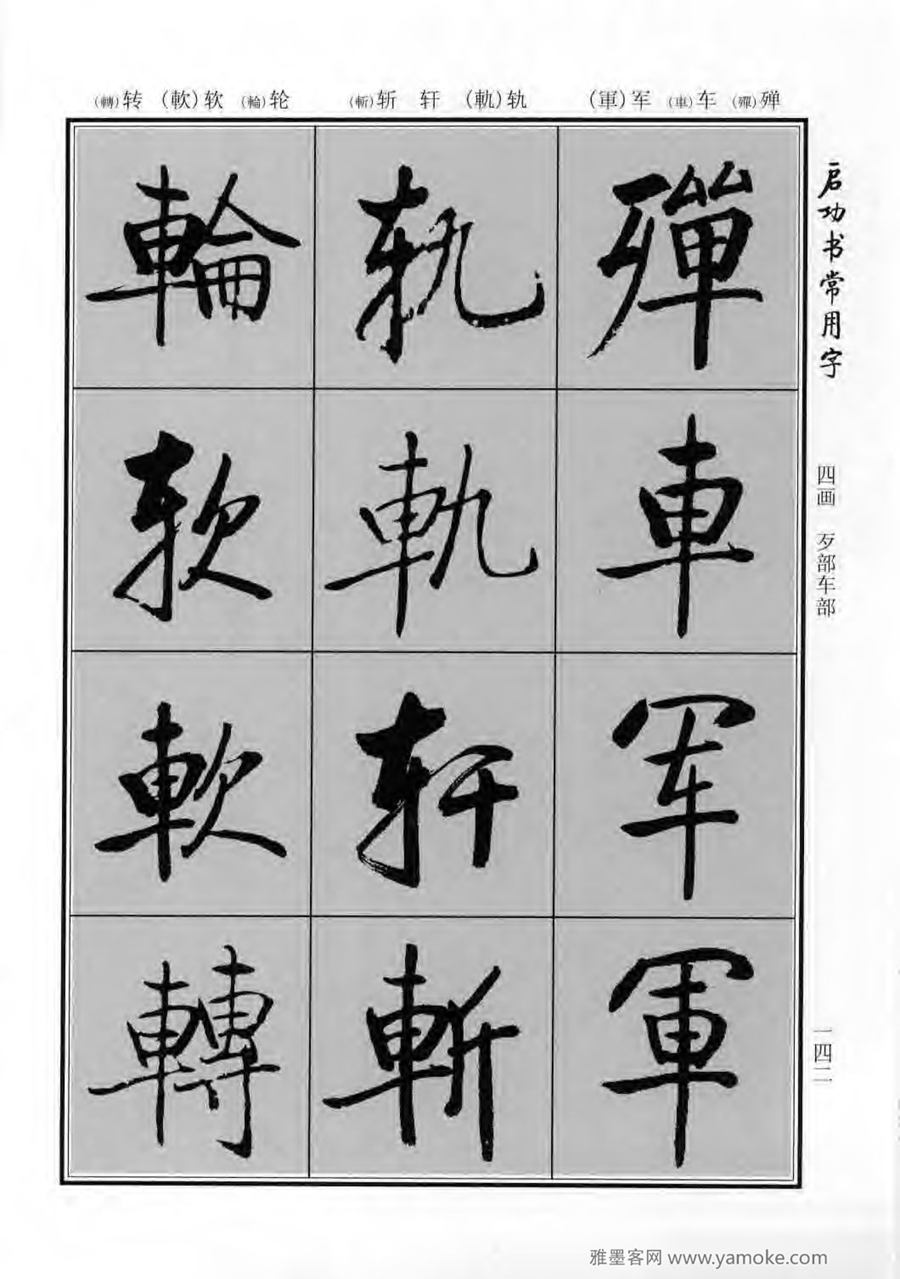 (轉)转 (軟)软 (輪)轮 (斬)斩 轩 (軌)轨 (軍)军 (車)车 (殫)殚
启功书常用字
四画 歹部车部
一四二
殫
車
军
軍
轨
軌
轩
斬
輪
软
軟
轉
雅墨客网 www.yamoke.com